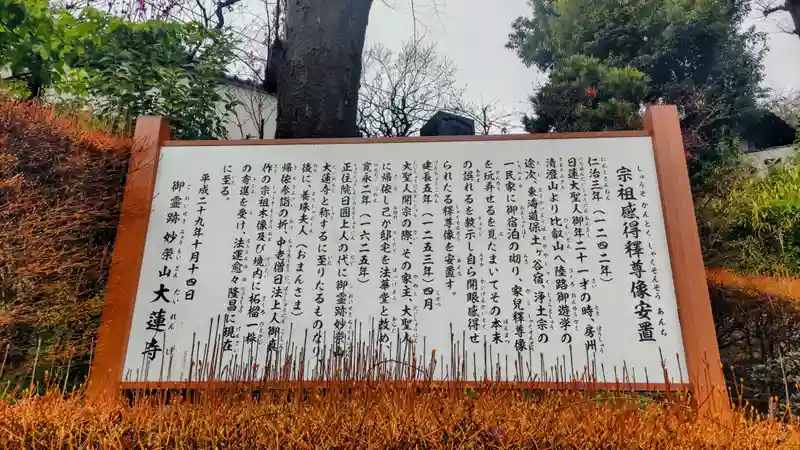 宗祖感得釋尊像安置
仁治三年（一二四二年）
日蓮大聖人御年二十一才の時、房州
清澄山より比叡山へ陸路御遊学の
途次、東海道保土ヶ谷宿、浄土宗の
一民家に御宿泊の砌り、家児釋尊像
を玩弄せるを見たまいてその本末
の誤れるを教示し自ら開眼感得せ
られたる釋尊像を安置す。
建長五年（一二五三年）四月
大聖人開宗の際、その家主、大聖人
に帰依し己が邸宅を法華堂と改め、
寛永二年（一六二五年）
正住院日圓上人の代に御霊跡妙榮山
大蓮寺と称するに至りたるものなり
後に、養珠夫人（おまんさま）
帰依参詣の折、中老僧日法上人御直
作の宗祖木像及び境内に柘榴一株
の寄進を受け、法運愈々隆昌に現在
に至る。
平成二十九年十月十四日
御霊跡 妙榮山 大蓮寺